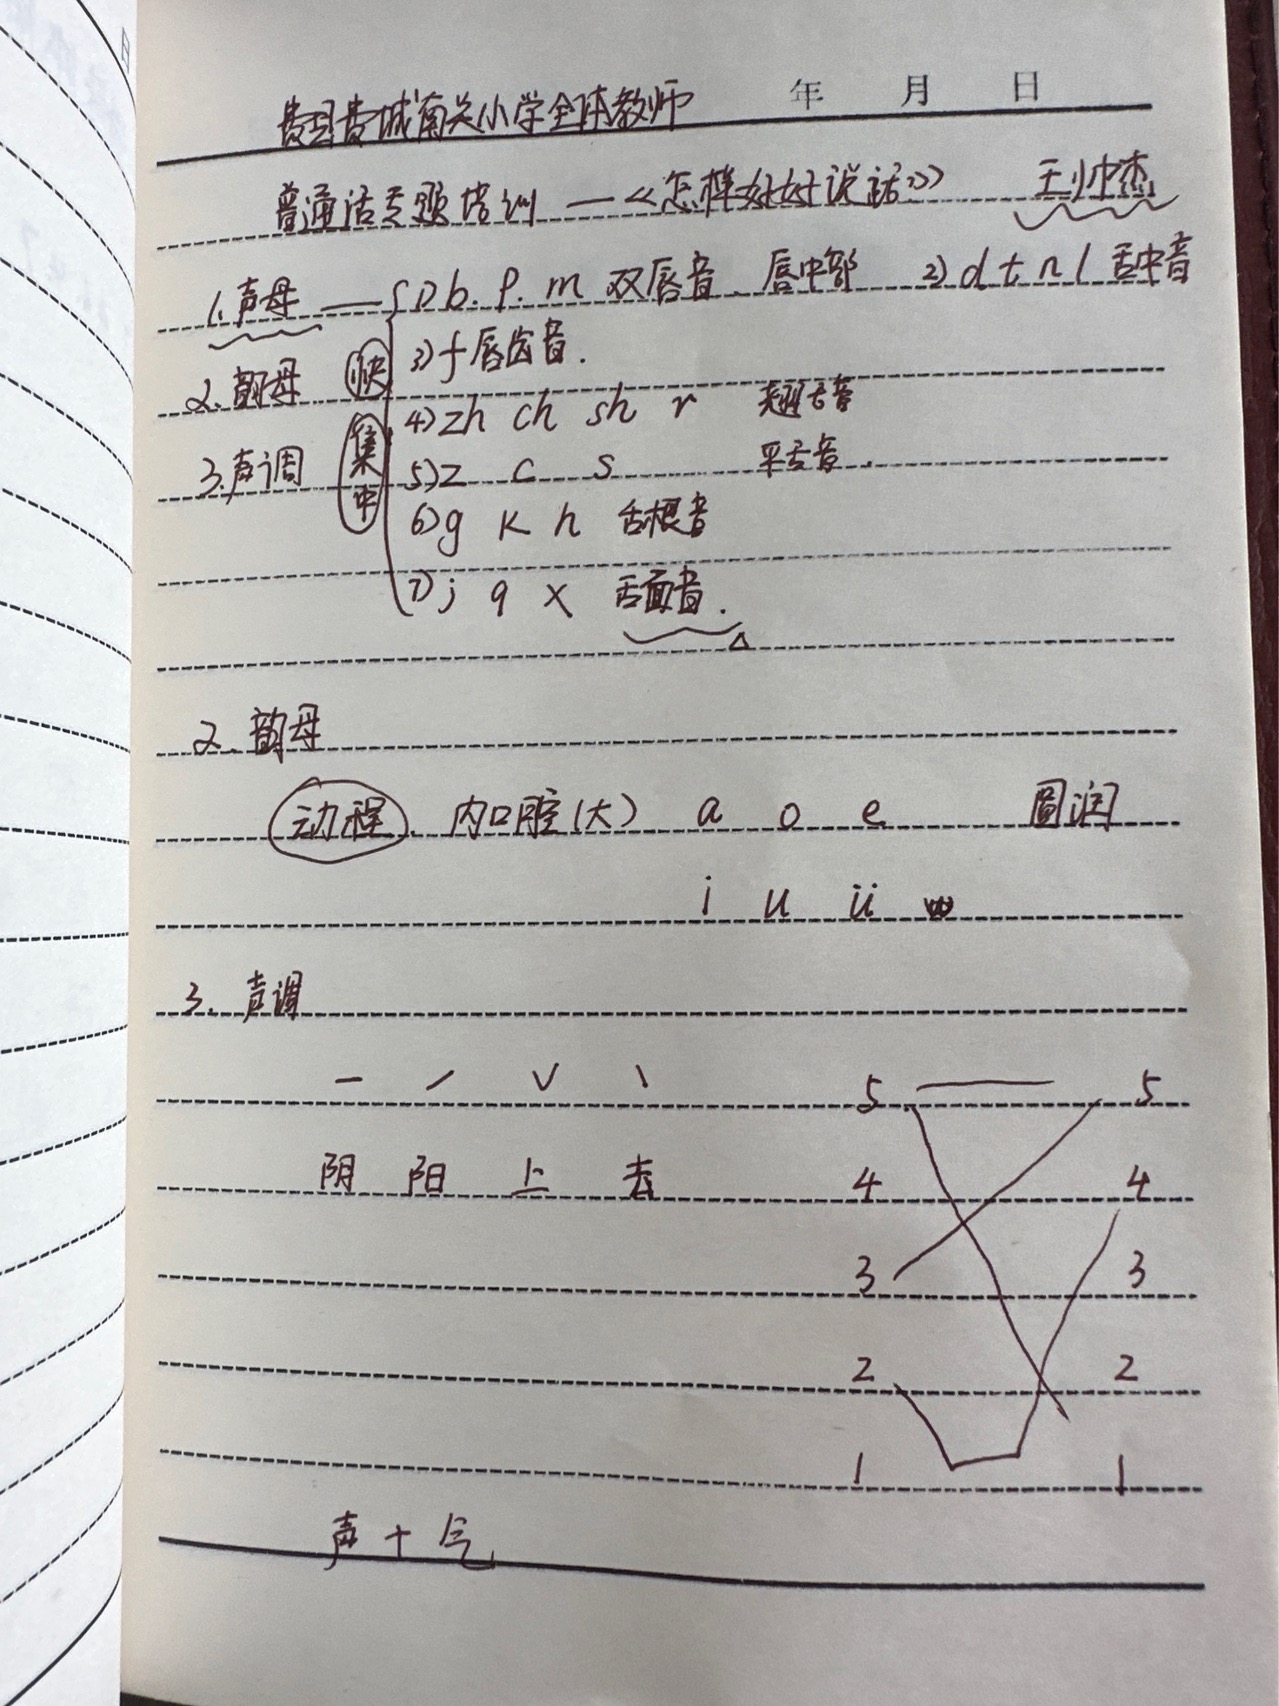 费县费城南关小学全体教师 年 月 日
普通话专题培训 —《怎样好好说话》 王帅杰
1.声母 — 1) b. p. m 双唇音. 唇中部 2) d t n l 舌中音
2.韵母 快 3) f 唇齿音.
4) zh ch sh r 翘舌音
3.声调 集中 5) z c s 平舌音.
6) g k h 舌根音
7) j q x 舌面音.
2.韵母
动程. 内口腔(大) a o e 圆润
i u ü
3.声调
ˉ ˊ ˇ ˋ 5 5
阴 阳 上 去 4 4
3 3
2 2
1 1
声+气